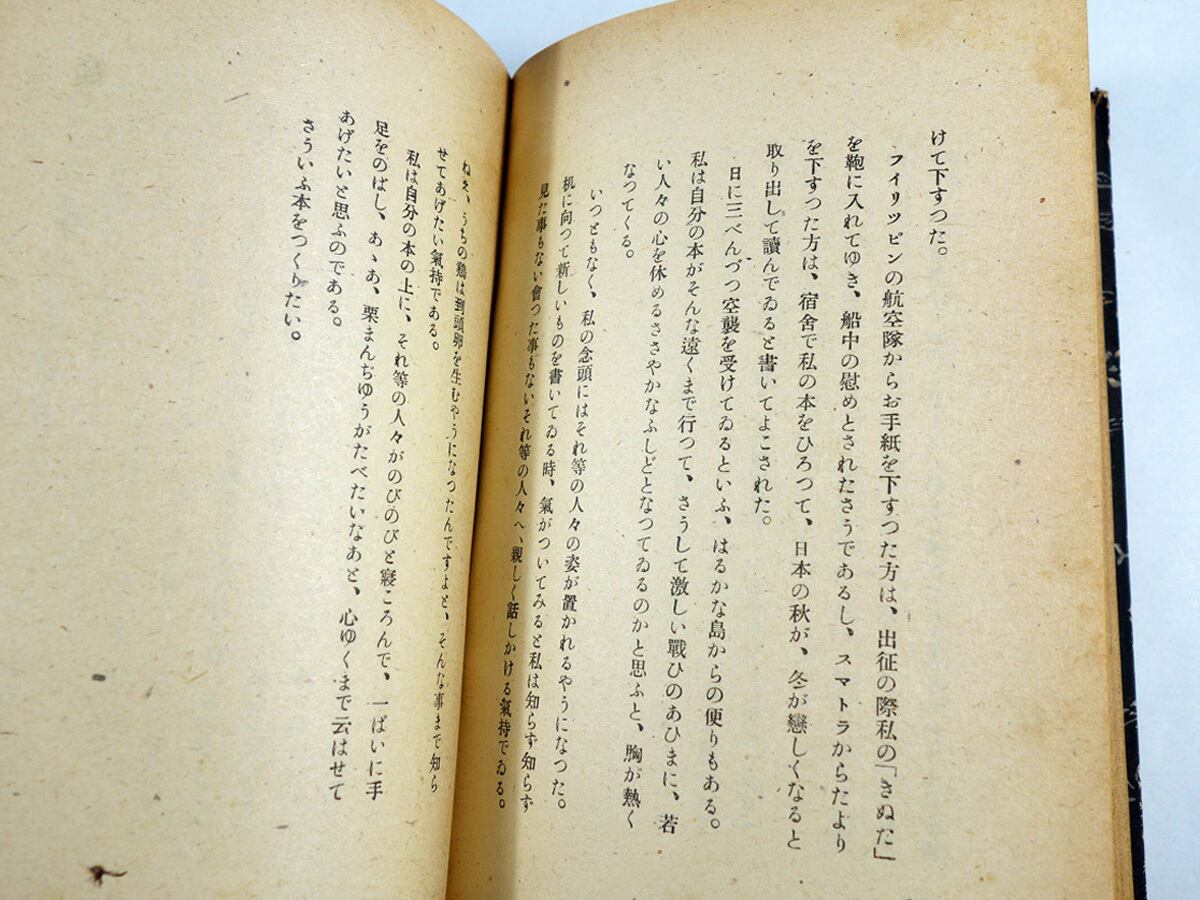 けて下すつた。
フイリツピンの航空隊からお手紙を下すつた方は、出征の際私の「きぬた」
を鞄に入れてゆき、船中の慰めとされたさうであるし、スマトラからたより
を下すつた方は、宿舍で私の本をひろつて、日本の秋が、冬が戀しくなると
取り出して讀んでゐると書いてよこされた。
日に三べんづつ空襲を受けてゐるといふ、はるかな島からの便りもある。
私は自分の本がそんな遠くまで行つて、さうして激しい戰ひのあひまに、若
い人々の心を休めるささやかなふしどとなつてゐるのかと思ふと、胸が熱く
なつてくる。
いつともなく、私の念頭にはそれ等の人々の姿が置かれるやうになつた。
机に向つて新しいものを書いてゐる時、氣がついてみると私は知らず知らず
見た事もない會つた事もないそれ等の人々へ、親しく話しかける氣持でゐる。
ねえ、うちの鷄は到頭卵を生むやうになつたんですよと、そんな事まで知ら
せてあげたい氣持である。
私は自分の本の上に、それ等の人々がのびのびと寢ころんで、一ぱいに手
足をのばし、あゝあ、栗まんぢゆうがたべたいなあと、心ゆくまで云はせて
あげたいと思ふのである。
さういふ本をつくりたい。